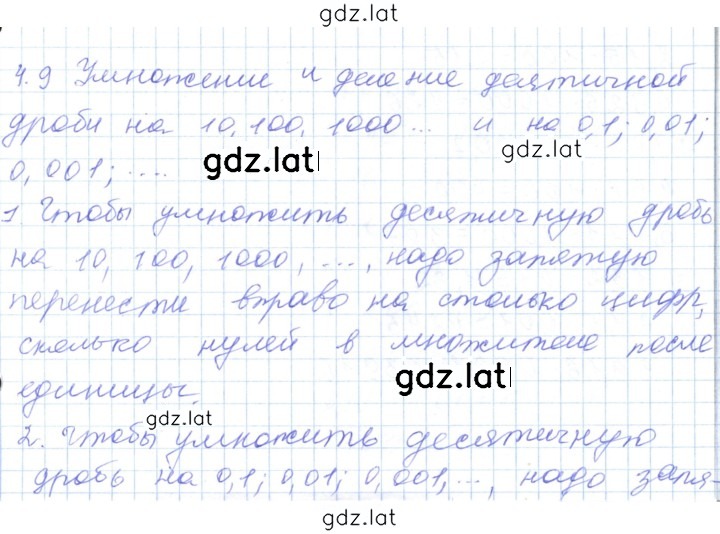 gdz.lat
4.9 Умножение и деление десятичной
дроби на 10, 100, 1000... и на 0,1; 0,01;
gdz.lat
0,001; ....
gdz.lat
1. Чтобы умножить десятичную дробь
на 10, 100, 1000, ..., надо запятую
перенести вправо на столько цифр,
сколько нулей в множителе после
единицы.
gdz.lat
gdz.lat
2. Чтобы умножить десятичную
дробь на 0,1; 0,01; 0,001,..., надо запя-
gdz.lat